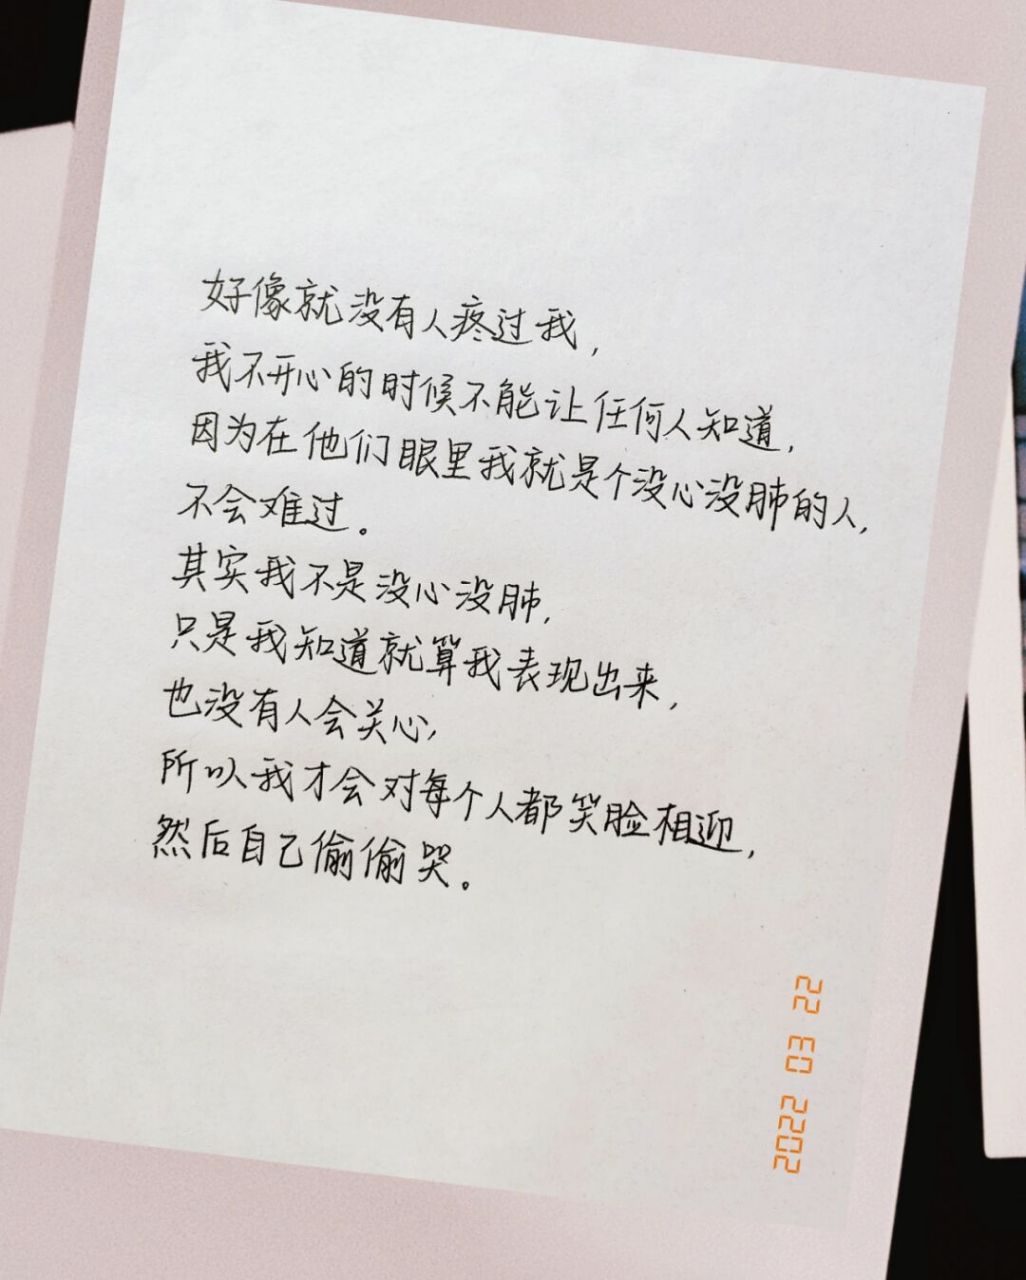 好像就没有人疼过我,
我不开心的时候不能让任何人知道,
因为在他们眼里我就是个没心没肺的人,
不会难过。
其实我不是没心没肺,
只是我知道就算我表现出来,
也没有人会关心,
所以我才会对每个人都笑脸相迎,
然后自己偷偷哭。
22 03 2022